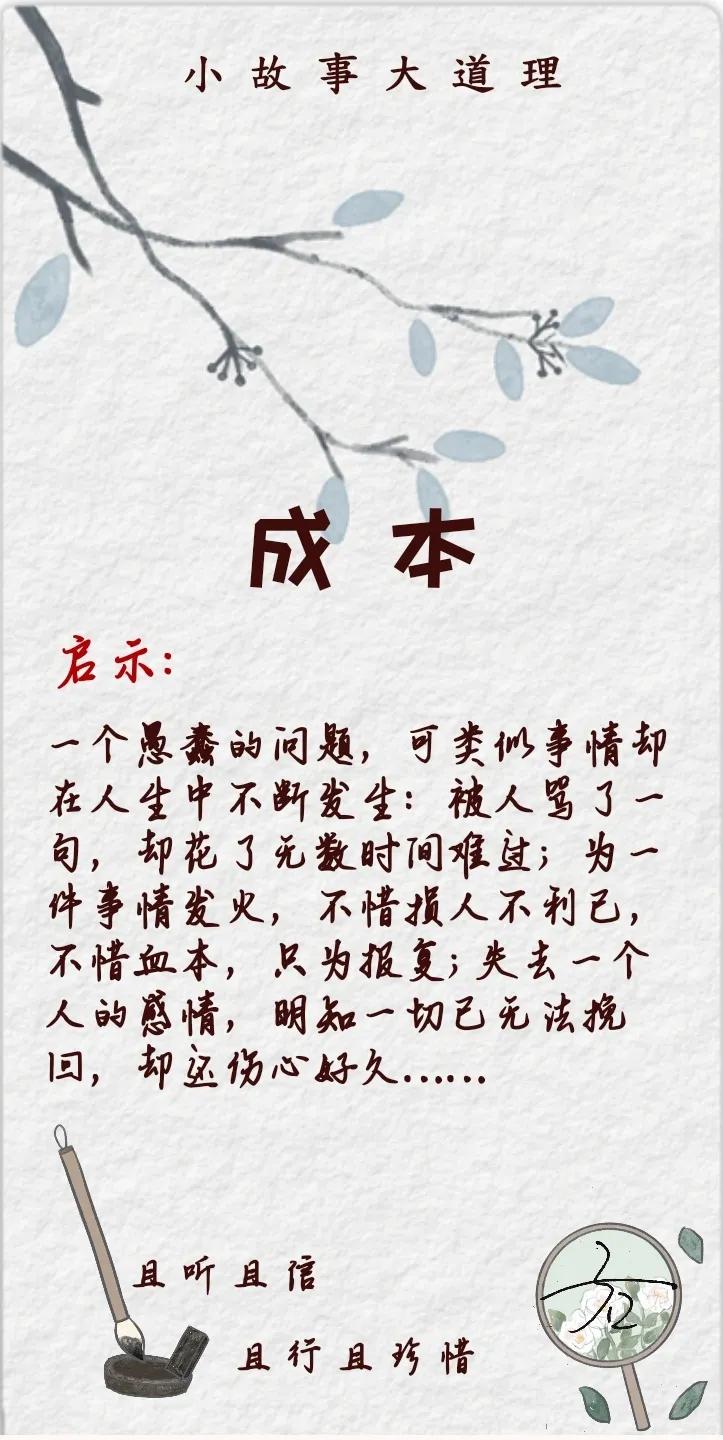 小故事大道理
成本
启示：
一个愚蠢的问题，可类似事情却
在人生中不断发生：被人骂了一
句，却花了无数时间难过；为一
件事情发火，不惜损人不利已，
不惜血本，只为报复；失去一个
人的感情，明知一切已无法挽
回，却还伤心好久……
且听且信
且行且珍惜